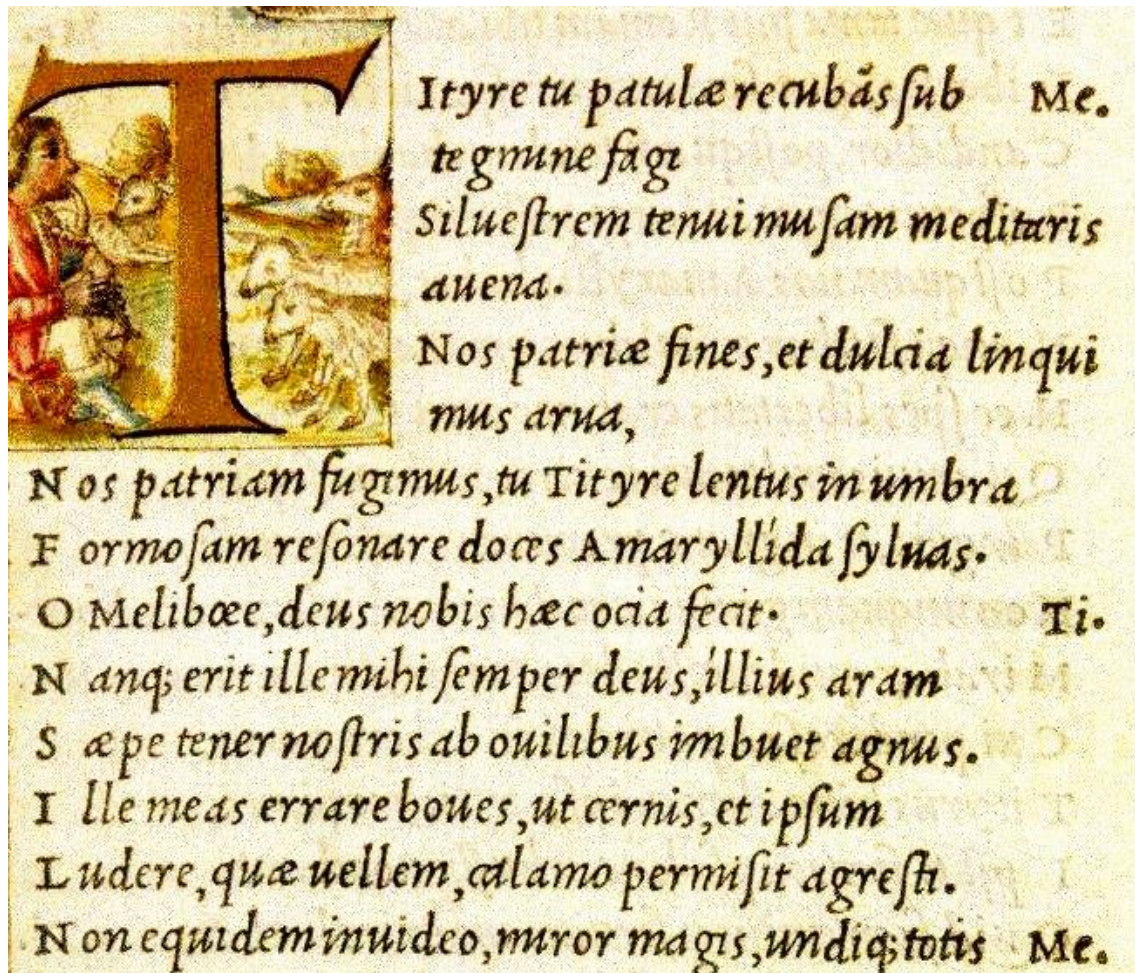 TItyre tu patulæ recubãs ſub Me.
tegmine fagi
Silueſtrem tenui muſam meditaris
auena.
Nos patriæ fines, et dulcia linqui
mus arua,
Nos patriam fugimus, tu Tityre lentus in umbra
Formoſam reſonare doces Amaryllída ſyluas.
O Melibœe, deus nobis hæc ocia fecit. Ti.
Nanq; erit ille mihi ſemper deus, íllius aram
Sæpe tener noſtris ab ouilibus imbuet agnus.
Ille meas errare boues, ut cernis, et ipſum
Ludere, quæ uellem, calamo permiſit agreſti.
Non equidem inuideo, miror magis, undiq; totis Me.